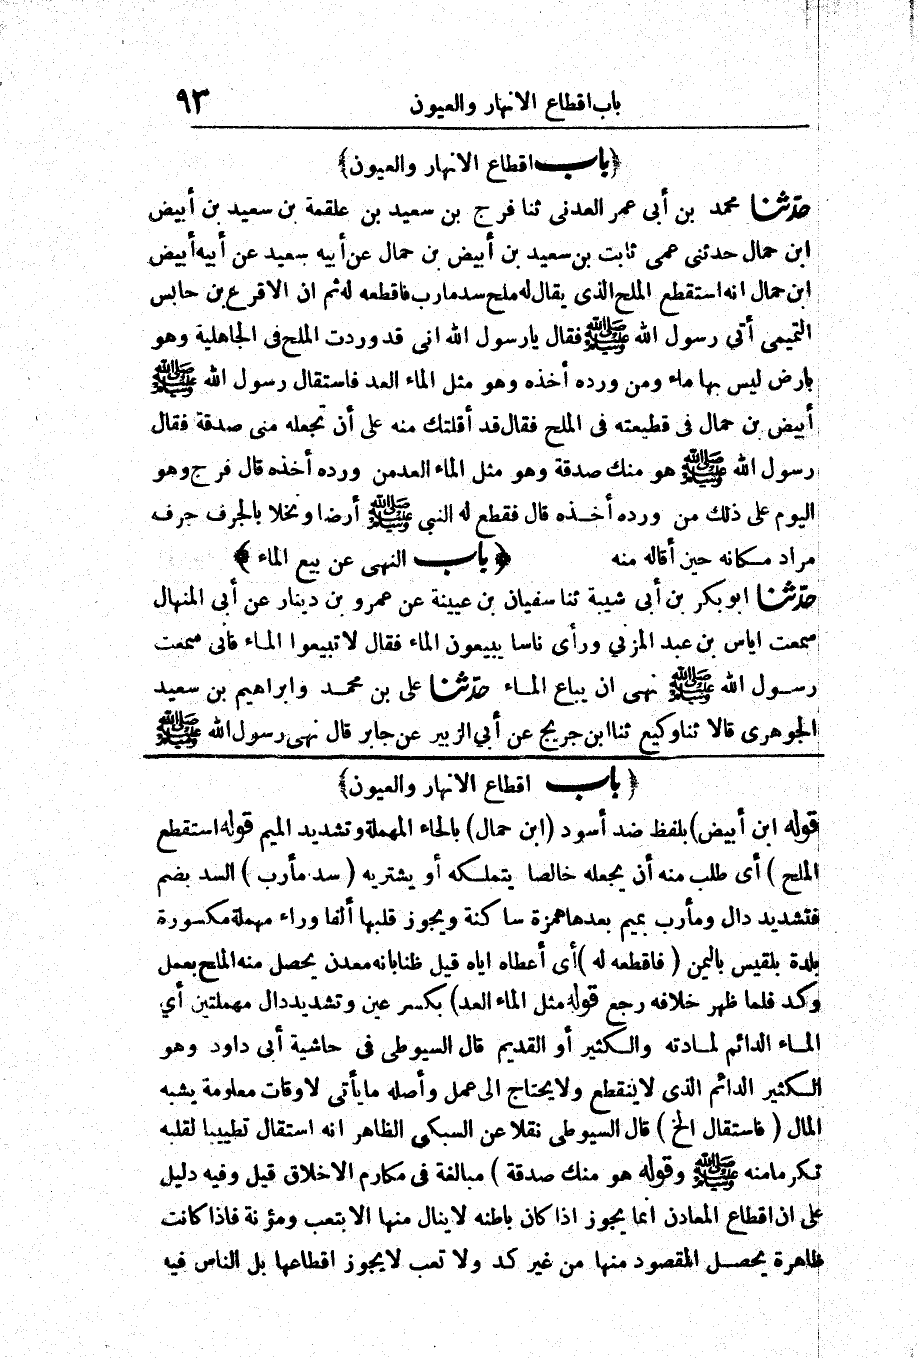 باب اقطاع الانهار والعيون ٩٣
﴿باب اقطاع الانهار والعيون﴾
حدثنا محمد بن أبى عمر العدنى ثنا فرج بن سعيد بن علقمة بن سعيد بن أبيض
ابن حمال حدثنى عمى ثابت بن سعيد بن أبيض بن حمال عن أبيه سعيد عن أبيه أبيض
ابن حمال انه استقطع الملح الذى يقال له ملح سد مارب فاقطعه له ثم ان الاقرع بن حابس
التميمى أتى رسول الله ﷺ فقال يارسول الله انى قد وردت الملح فى الجاهلية وهو
بارض ليس بها ماء ومن ورده أخذه وهو مثل الماء العد فاستقال رسول الله ﷺ
أبيض بن حمال فى قطيعته فى الملح فقال قد أقلتك منه على أن تجعله منى صدقة فقال
رسول الله ﷺ هو منك صدقة وهو مثل الماء العد من ورده أخذه قال فرج وهو
اليوم على ذلك من ورده أخذه قال فقطع له النبى ﷺ أرضا ونخلا بالجرف جرف
مراد مكانه حين أقاله منه ﴿باب النهى عن بيع الماء﴾
حدثنا ابو بكر بن أبى شيبة ثنا سفيان بن عيينة عن عمرو بن دينار عن أبى المنهال
سمعت اياس بن عبد المزنى ورأى ناسا يبيعون الماء فقال لا تبيعوا الماء فانى سمعت
رسول الله ﷺ نهى ان يباع الماء حدثنا على بن محمد وابراهيم بن سعيد
الجوهرى قالا ثنا وكيع ثنا ابن جريج عن أبي الزبير عن جابر قال نهى رسول الله ﷺ
﴿باب اقطاع الانهار والعيون﴾
قوله ابن أبيض) بلفظ ضد أسود (ابن حمال) بالحاء المهملة وتشديد الميم قوله استقطع
الملح ) أى طلب منه أن يجعله خالصا يتملكه أو يشتريه ( سد مأرب ) السد بضم
فتشديد دال ومأرب بميم بعدها همزة ساكنة ويجوز قلبها ألفا وراء مهملة مكسورة
بلدة بلقيس باليمن ( فاقطعه له )أى أعطاه اياه قيل ظنا بانه معدن يحصل منه الملح بعمل
وكد فلما ظهر خلافه رجع قوله مثل الماء العد) بكسر عين وتشديد دال مهملتين أي
الماء الدائم لمادته والكثير أو القديم قال السيوطى فى حاشية أبى داود وهو
الكثير الدائم الذى لا ينقطع ولا يحتاج الى عمل وأصله ما يأتى لاوقات معلومة يشبه
المال ( فاستقال الخ ) قال السيوطى نقلا عن السبكى الظاهر انه استقال تطييبا لقلبه
تكرما منه ﷺ وقوله هو منك صدقة ) مبالغة فى مكارم الاخلاق قيل وفيه دليل
على ان اقطاع المعادن انما يجوز اذا كان باطنه لا ينال منها الا بتعب ومؤنة فاذا كانت
ظاهرة يحصل المقصود منها من غير كد ولا تعب لا يجوز اقطاعها بل الناس فيه